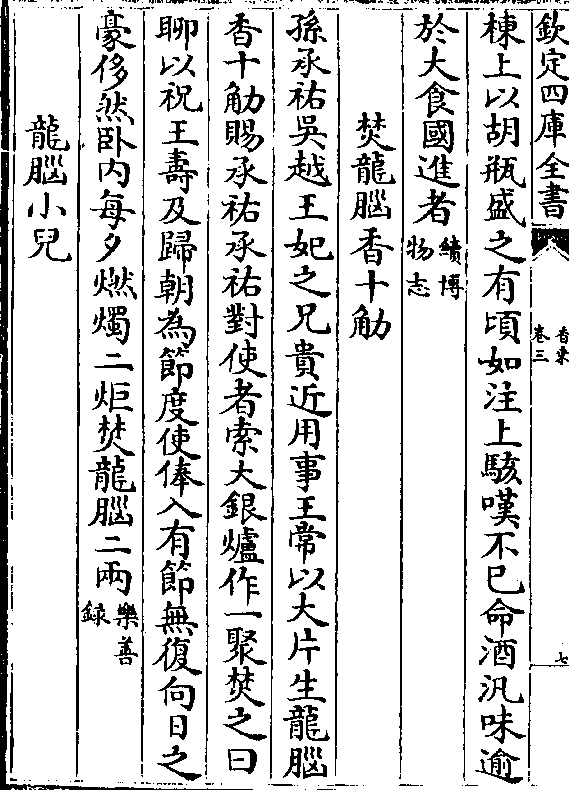 欽定四庫全書
香乗
卷三
七
棟上以胡瓶盛之有頃如注上駭嘆不已命酒汎味逾
於大食國進者續博物志
焚龍腦香十觔
孫承祐吳越王妃之兄貴近用事王常以大片生龍腦
香十觔賜承祐承祐對使者索大銀爐作一聚焚之曰
聊以祝王壽及歸朝為節度使俸入有節無復向日之
豪侈然卧内每夕燃燭二炬焚龍腦二兩樂善録
龍腦小兒